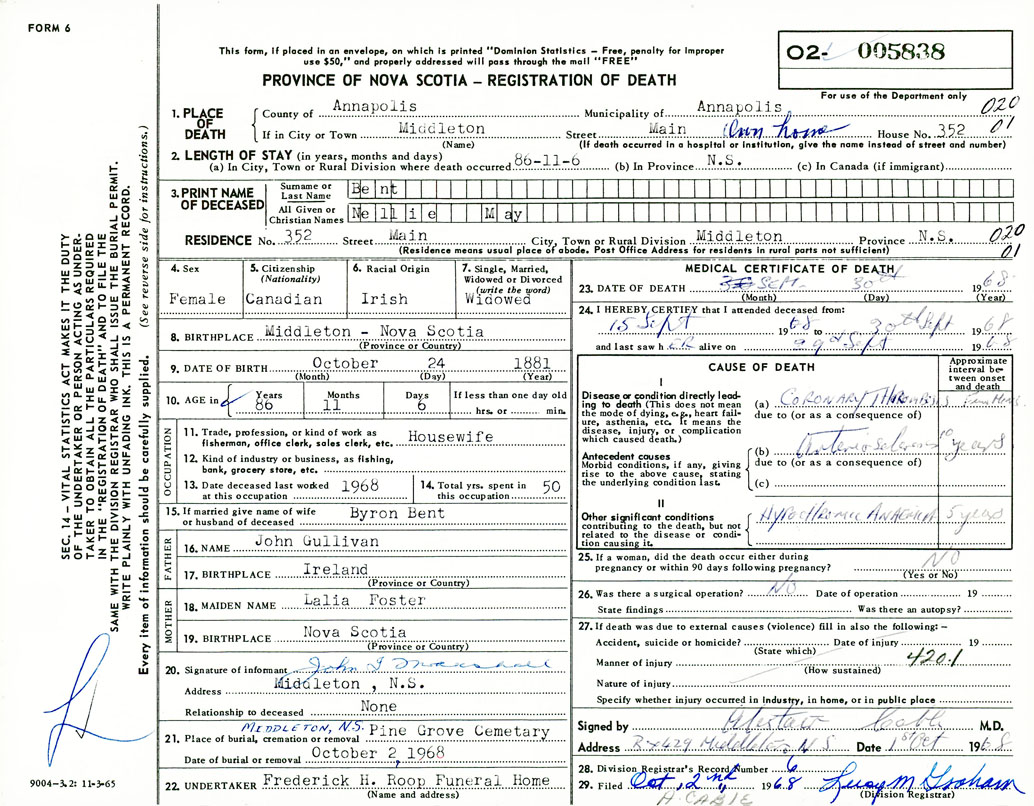 FORM 6
This form, if placed in an envelope, on which is printed "Dominion Statistics – Free, penalty for improper
use $50," and properly addressed will pass through the mail "FREE"
PROVINCE OF NOVA SCOTIA – REGISTRATION OF DEATH
O2- 005838
For use of the Department only
020
01
1. PLACE OF DEATH
County of Annapolis Municipality of Annapolis
If in City or Town Middleton Street Main Own home House No. 352
(Name) (If death occurred in a hospital or institution, give the name instead of street and number)
2. LENGTH OF STAY (in years, months and days)
(a) In City, Town or Rural Division where death occurred 86-11-6 (b) In Province N.S. (c) In Canada (if immigrant)
3. PRINT NAME OF DECEASED
Surname or Last Name Bent
All Given or Christian Names Nellie May
RESIDENCE No. 352 Street Main City, Town or Rural Division Middleton Province N.S. 020
(Residence means usual place of abode. Post Office Address for residents in rural parts not sufficient) 01
4. Sex Female
5. Citizenship (Nationality) Canadian
6. Racial Origin Irish
7. Single, Married, Widowed or Divorced (write the word) Widowed
8. BIRTHPLACE Middleton - Nova Scotia
(Province or Country)
9. DATE OF BIRTH October 24 1881
(Month) (Day) (Year)
10. AGE in Years 86 Months 11 Days 6 If less than one day old hrs. or min.
OCCUPATION
11. Trade, profession, or kind of work as
fisherman, office clerk, sales clerk, etc. Housewife
12. Kind of industry or business, as fishing,
bank, grocery store, etc.
13. Date deceased last worked at this occupation 1968
14. Total yrs. spent in this occupation 50
15. If married give name of wife
or husband of deceased Byron Bent
FATHER
16. NAME John Gullivan
17. BIRTHPLACE Ireland
(Province or Country)
MOTHER
18. MAIDEN NAME Lalia Foster
19. BIRTHPLACE Nova Scotia
(Province or Country)
20. Signature of informant John
Address Middleton , N.S.
Relationship to deceased None
MIDDLETON, N.S.
21. Place of burial, cremation or removal Pine Grove Cemetary
Date of burial or removal October 2, 1968
22. UNDERTAKER Frederick H. Roop Funeral Home
(Name and address)
MEDICAL CERTIFICATE OF DEATH
23. DATE OF DEATH SEPT. 30th 1968
(Month) (Day) (Year)
24. I HEREBY CERTIFY that I attended deceased from:
15 Sept 1968 to 30th Sept 1968
and last saw her alive on 29th Sept 1968
CAUSE OF DEATH
Approximate interval between onset and death
I
Disease or condition directly leading to death (This does not mean the mode of dying, e.g., heart failure, asthenia, etc. It means the disease, injury, or complication which caused death.)
(a) CORONARY THROMBOSIS
due to (or as a consequence of)
Antecedent causes
Morbid conditions, if any, giving rise to the above cause, stating the underlying condition last.
(b) Arteriosclerosis 10 years
due to (or as a consequence of)
(c)
II
Other significant conditions contributing to the death, but not related to the disease or condition causing it.
HYPOCHROMIC ANAEMIA 5 years
25. If a woman, did the death occur either during
pregnancy or within 90 days following pregnancy? NO
(Yes or No)
26. Was there a surgical operation? NO Date of operation 19
State findings Was there an autopsy?
27. If death was due to external causes (violence) fill in also the following:–
Accident, suicide or homicide? Date of injury 19
(State which)
Manner of injury 420.1
(How sustained)
Nature of injury
Specify whether injury occurred in industry, in home, or in public place
Signed by Alistair Cable M.D.
Address Bx 429 Middleton N S Date 1st Oct 1968
28. Division Registrar's Record Number 6
29. Filed Oct, 2nd 1968 Lucy M. Graham
(Division Registrar)
A. CABLE
SEC. 14 – VITAL STATISTICS ACT MAKES IT THE DUTY
OF THE UNDERTAKER OR PERSON ACTING AS UNDER-
TAKER TO OBTAIN ALL THE PARTICULARS REQUIRED
IN THE "REGISTRATION OF DEATH" AND TO FILE THE
SAME WITH THE DIVISION REGISTRAR WHO SHALL ISSUE THE BURIAL PERMIT.
WRITE PLAINLY WITH UNFADING INK. THIS IS A PERMANENT RECORD.
Every item of information should be carefully supplied. (See reverse side for instructions.)
9004-3.2: 11-3-65